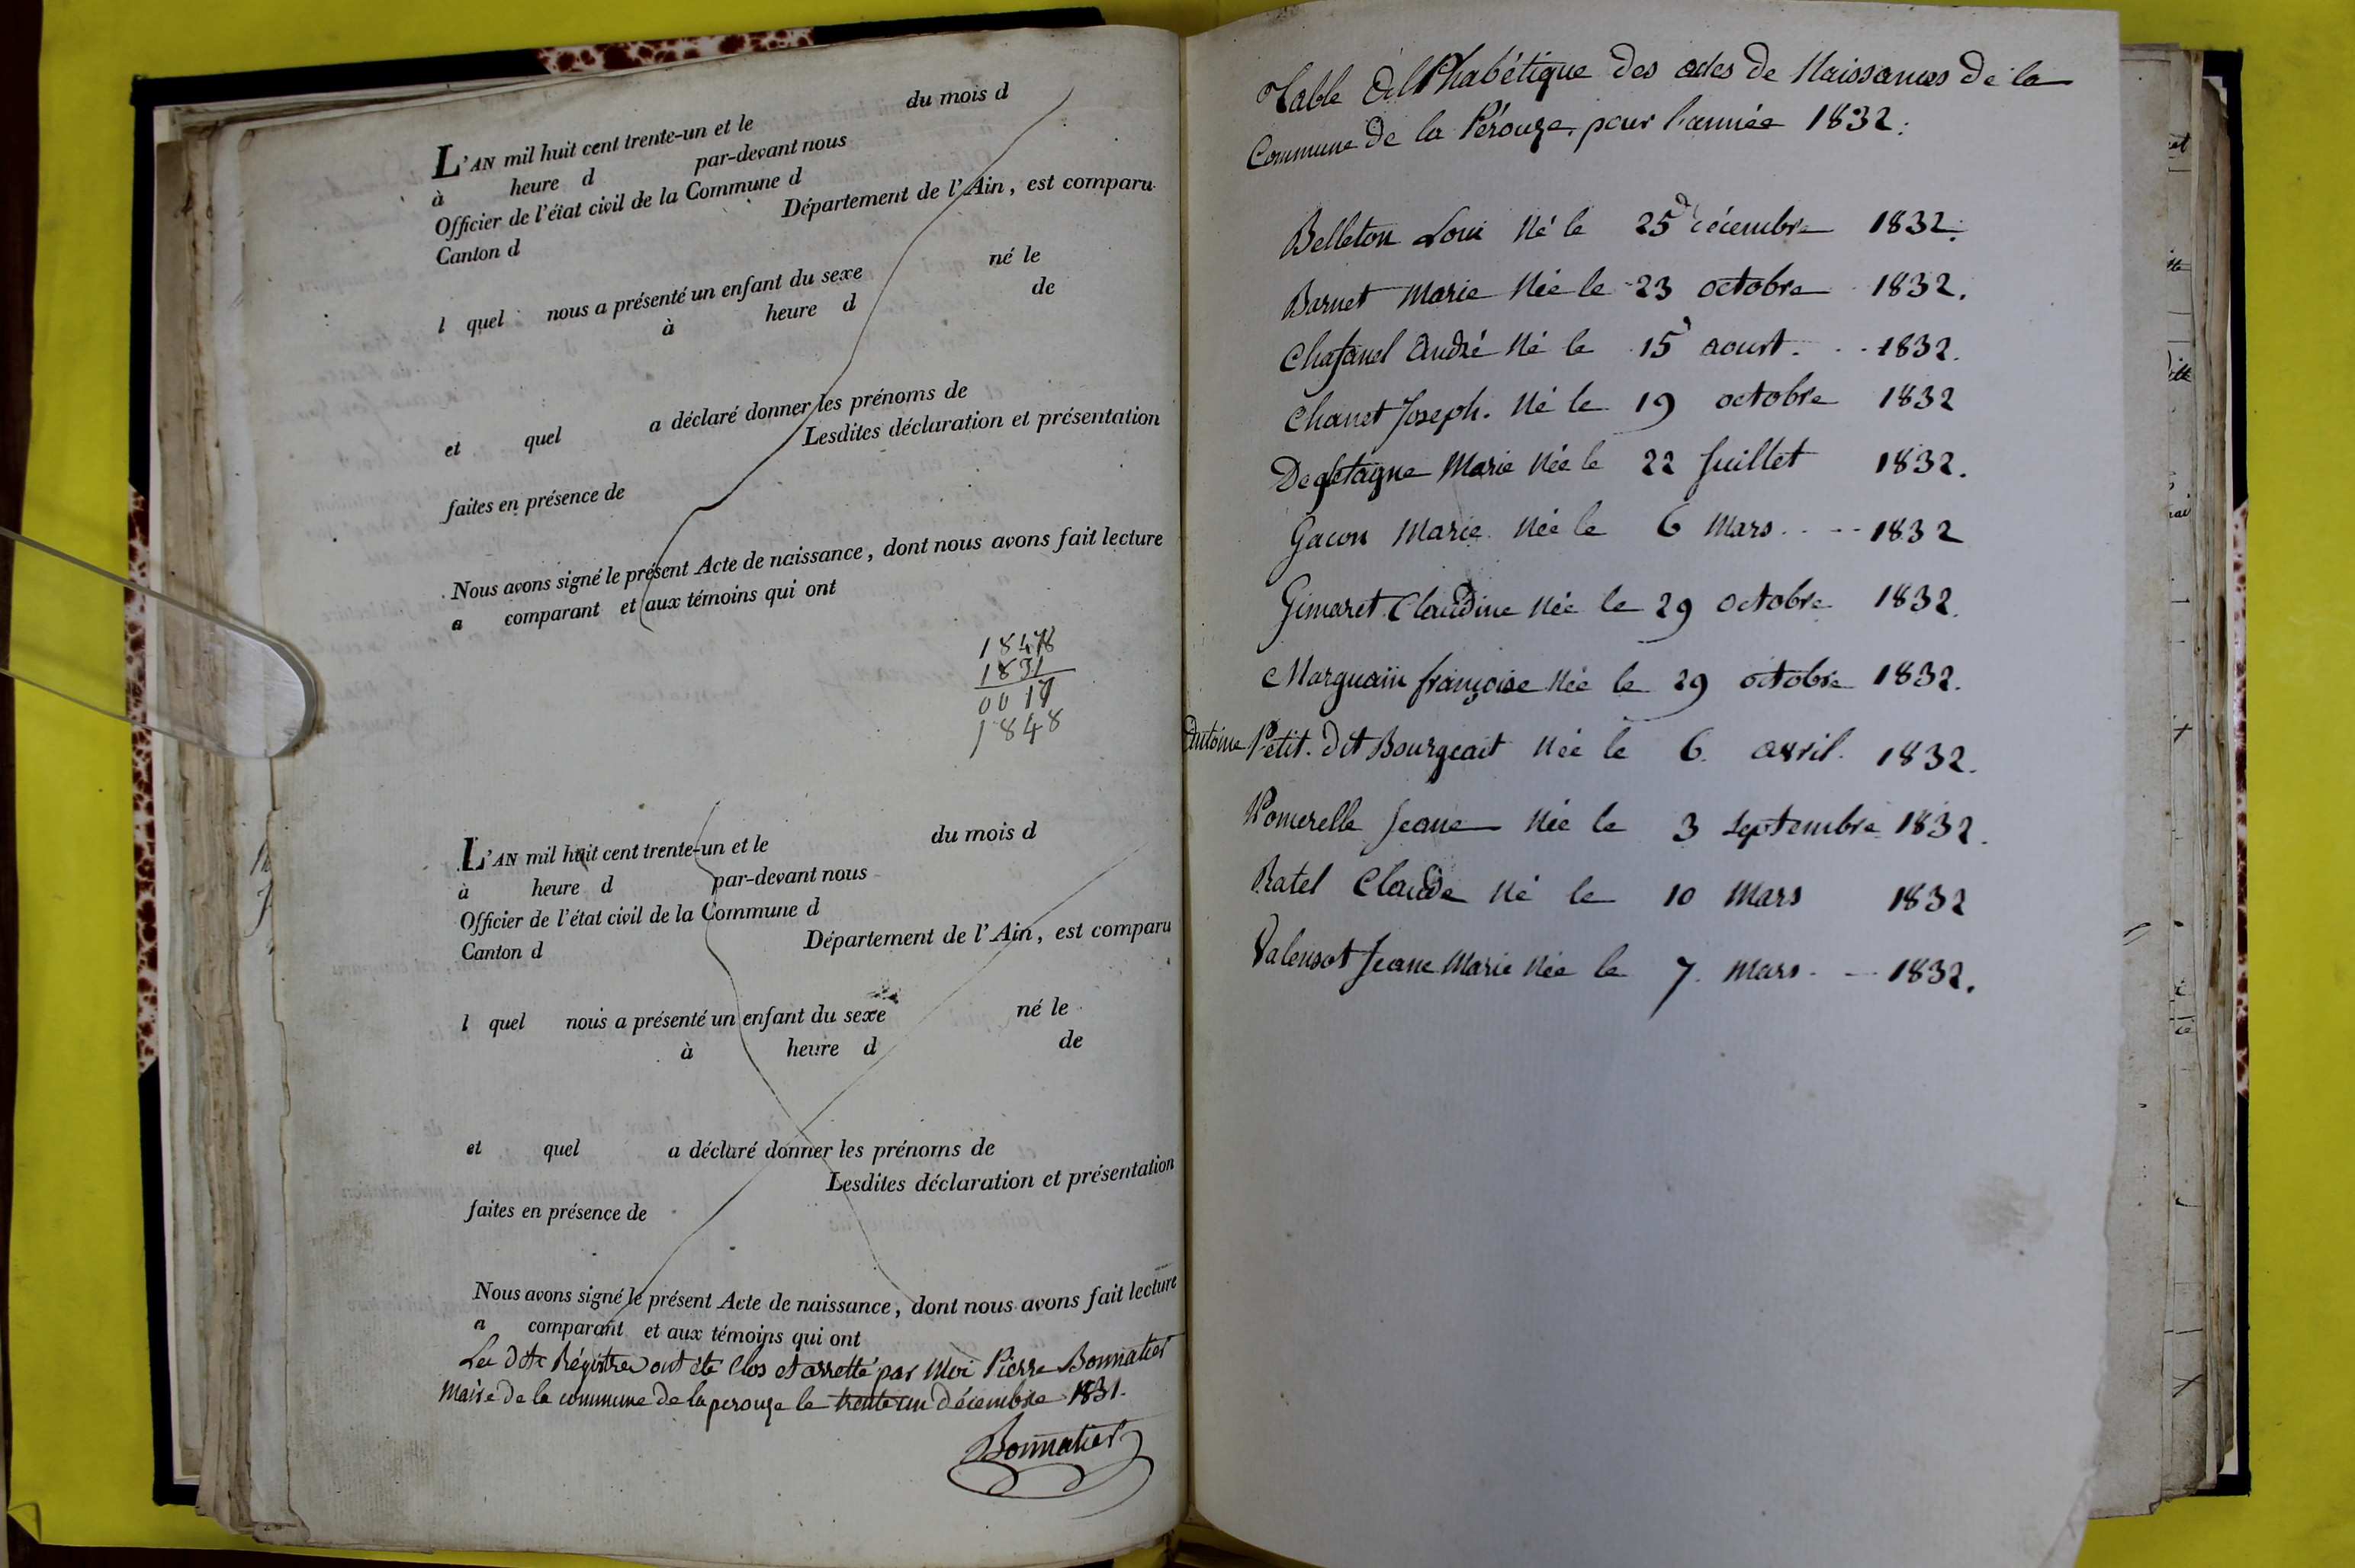 L'AN mil huit cent trente-un et le du mois d
à heure d par-devant nous
Officier de l'état civil de la Commune d
Canton d Département de l'Ain, est comparu
l quel nous a présenté un enfant du sexe né le
à heure d de
et quel a déclaré donner les prénoms de
Lesdites déclaration et présentation
faites en présence de
Nous avons signé le présent Acte de naissance, dont nous avons fait lecture
a comparant et aux témoins qui ont
1848
1831
0017
1848
L'AN mil huit cent trente-un et le du mois d
à heure d par-devant nous
Officier de l'état civil de la Commune d
Canton d Département de l'Ain, est comparu
l quel nous a présenté un enfant du sexe né le
à heure d de
et quel a déclaré donner les prénoms de
Lesdites déclaration et présentation
faites en présence de
Nous avons signé le présent Acte de naissance, dont nous avons fait lecture
a comparant et aux témoins qui ont
Les dits Régistres ont été clos et arretté par Moi Pierre Bonnatier
Maire de la commune de la perouze le trente un décembre 1831.
Bonnatier
Table AlPhabétique des actes de Naissances de la
Commune de la Pérouze, pour l'année 1832.
Belleton Loui Né le 25 décembre 1832.
Barnet Marie Née le 23 octobre 1832.
Chafanel André Né le 15 aoust 1832.
Chanet Joseph. Né le 19 octobre 1832
Marie Née le 22 Juillet 1832.
Gacon Marie Née le 6 Mars 1832
Gimaret Claudine Née le 29 octobre 1832.
Marguain françoise Née le 29 octobre 1832.
Antoine Petit. dit Bourgeait Née le 6. avril. 1832.
Pomerelle Jeane Née le 3 Septembre 1832.
Ratel Claude Né le 10 Mars 1832
Valensot Jeane Marie Née le 7. Mars 1832.